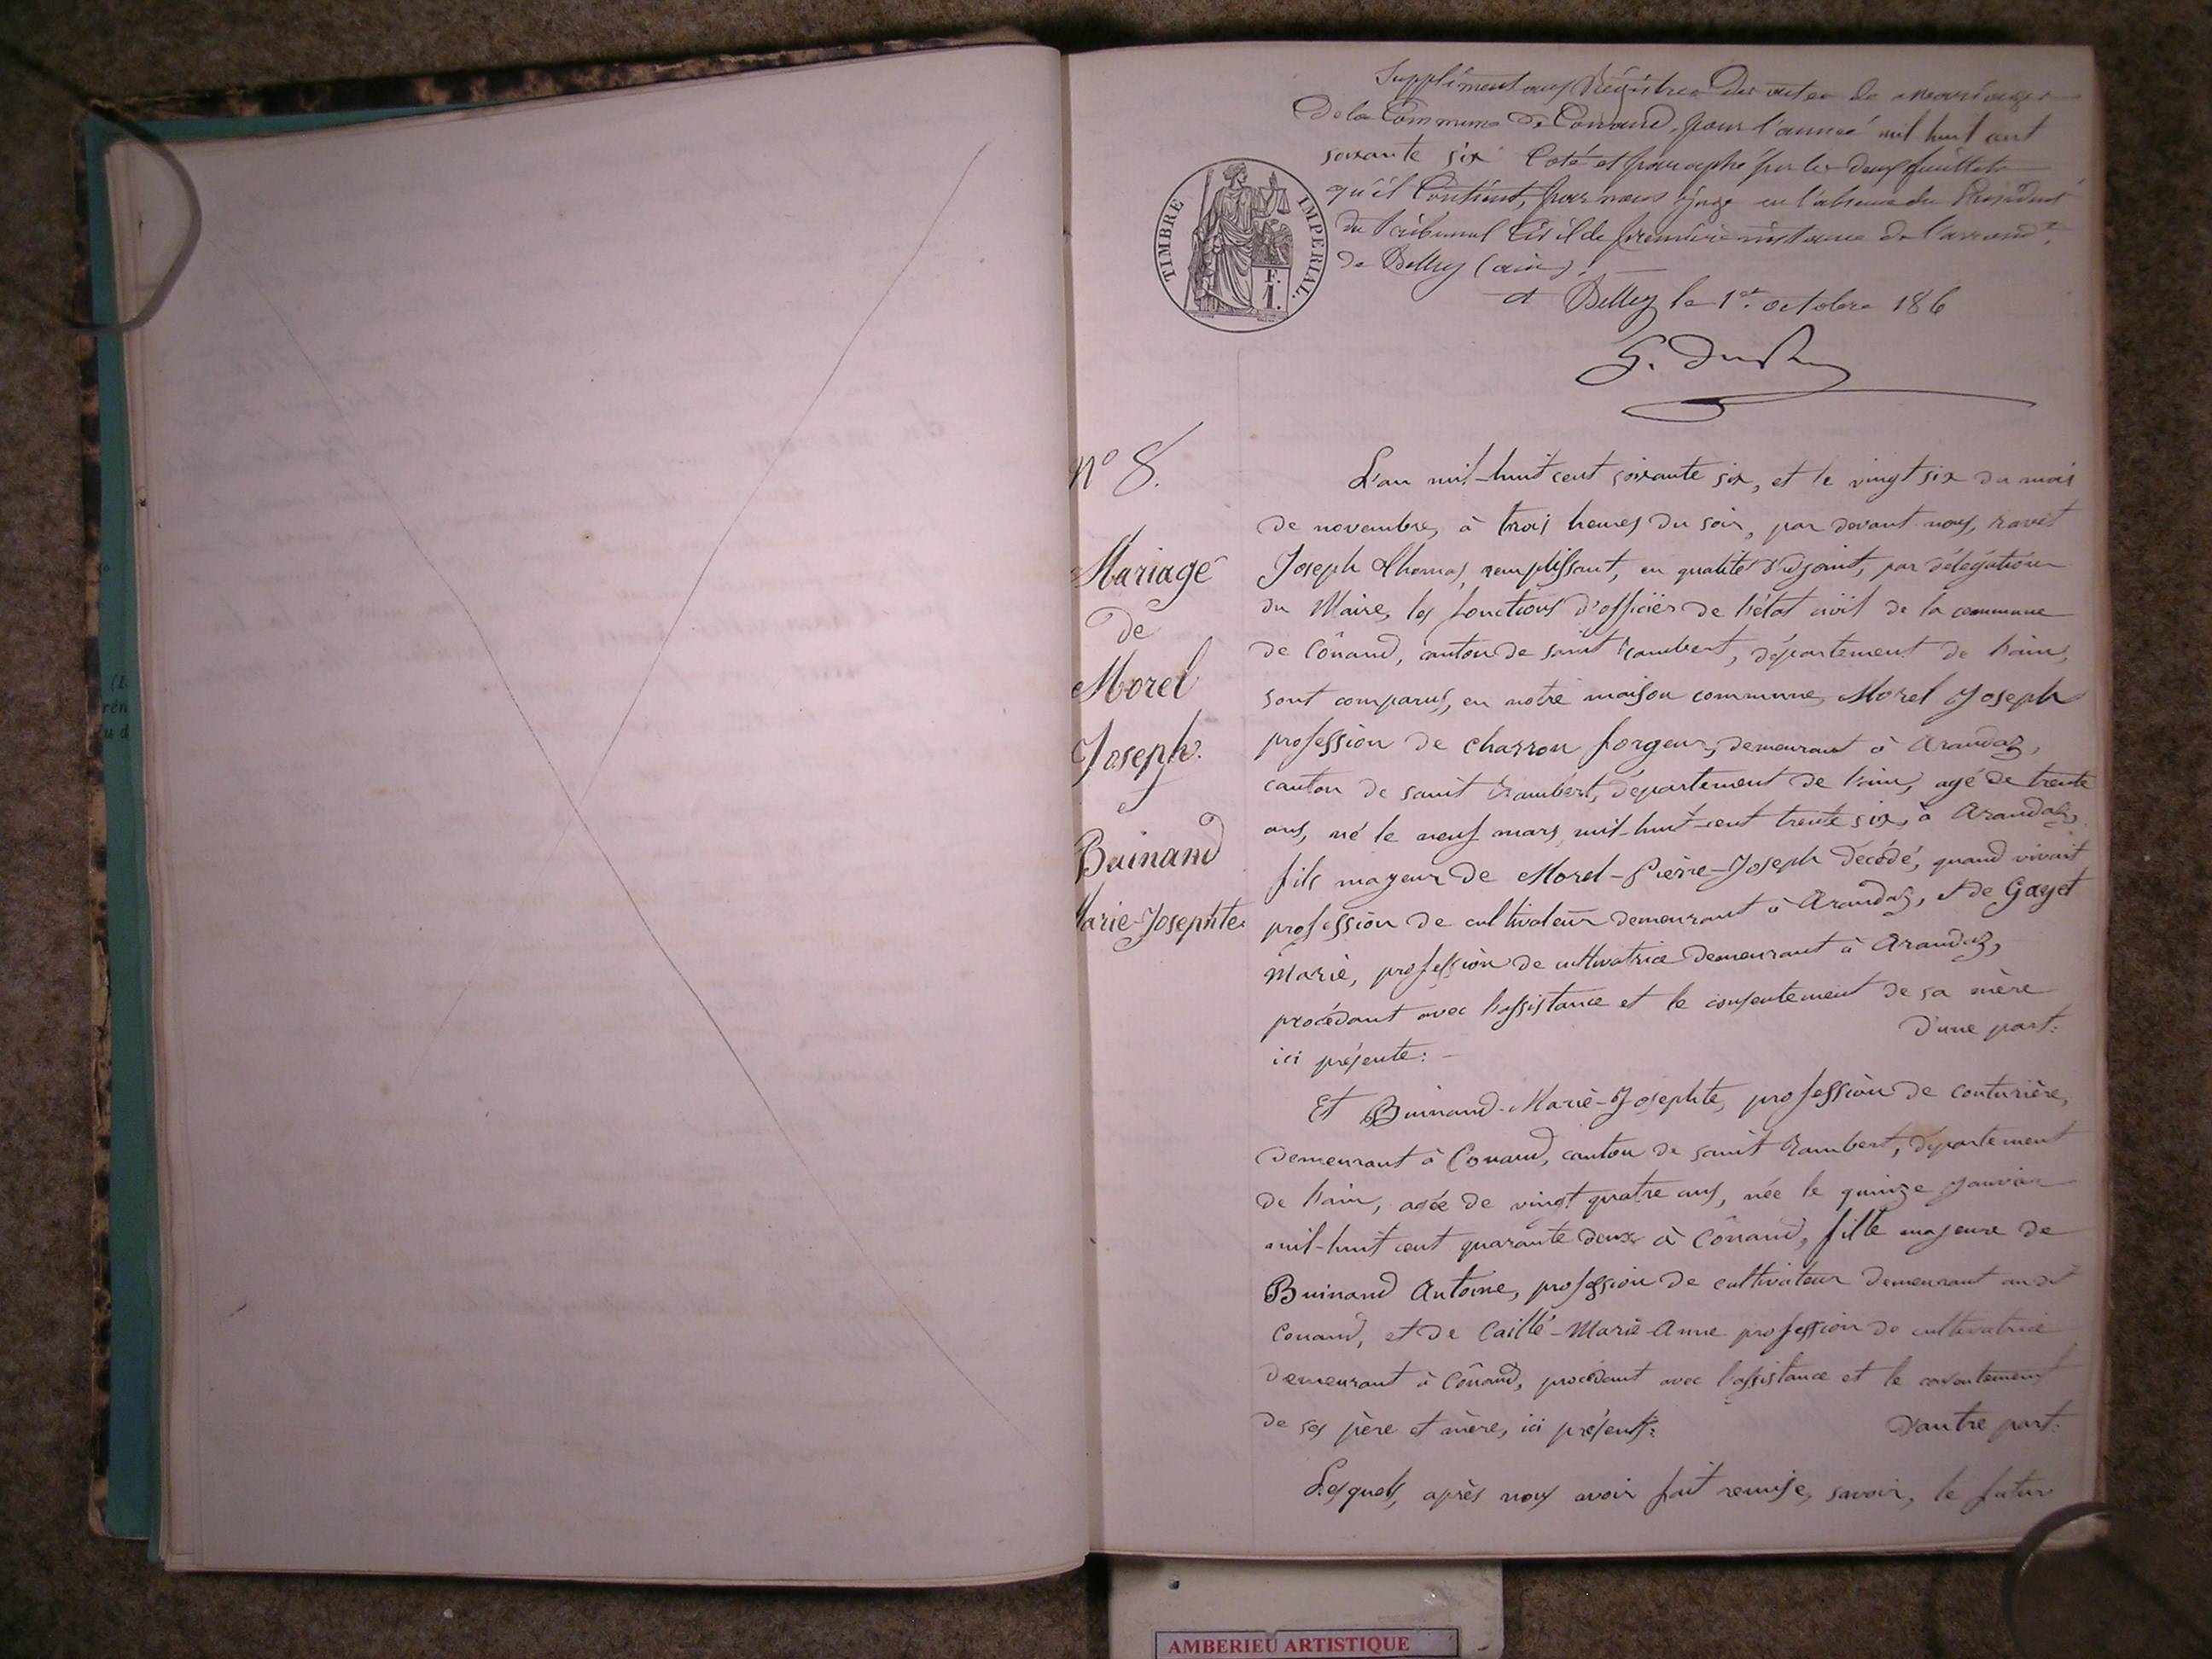 Supplément aux Régistres des actes de mariages
De la Commune de Conand, pour l'année mil huit cent
soixante six Coté et paraphé par les deux feuillets
qu'il Contient, par nous Juge en l'absence du Président
du Tribunal Civil de première instance de l'arrond.t
de Belley (ain).
a Belley le 1er octobre 186
TIMBRE IMPERIAL.
F.
1.
N° 8.
Mariage
de
Morel
Joseph.
et
Buinand
Marie-Josephte
L'an mil-huit cent soixante six, et le vingt six du mois
de novembre, à trois heures du soir, par devant nous, ravet
Joseph Thomas, remplissant, en qualité d'adjoint, par délégation
du Maire, les fonctions d'officier de l'état civil de la commune
de Cônand, canton de saint rambert, département de l'ain,
sont comparus, en notre maison commune, Morel Joseph
profession de charron forgeur, demeurant à Arandaz,
canton de saint Rambert, département de l'ain, agé de trente
ans, né le neuf mars mil-huit-cent trente six, à Arandaz,
fils mageur de Morel-Pierre-Joseph décédé, quand vivait
profession de cultivateur demeurant à Arandaz, et de Gayet
Marie, profession de cultivatrice demeurant à Arandaz,
procédant avec l'assistance et le consentement de sa mère
ici présente: -
D'une part:
Et Buinand-Marie-Josephte, profession de couturière,
demeurant à Conand, canton de saint Rambert, département
de l'ain, agée de vingt quatre ans, née le quinze janvier
mil-huit cent quarante deux à Cônand, fille majeure de
Buinand Antoine, profession de cultivateur demeurant au dit
Conand, et de Caillé-Marie-Anne profession de cultivatrice
demeurant à Cônand, procédant avec l'assistance et le consentement
de ses père et mère, ici présents:
D'autre part:
Lesquels, après nous avoir fait remise, savoir, le futur
AMBERIEU ARTISTIQUE